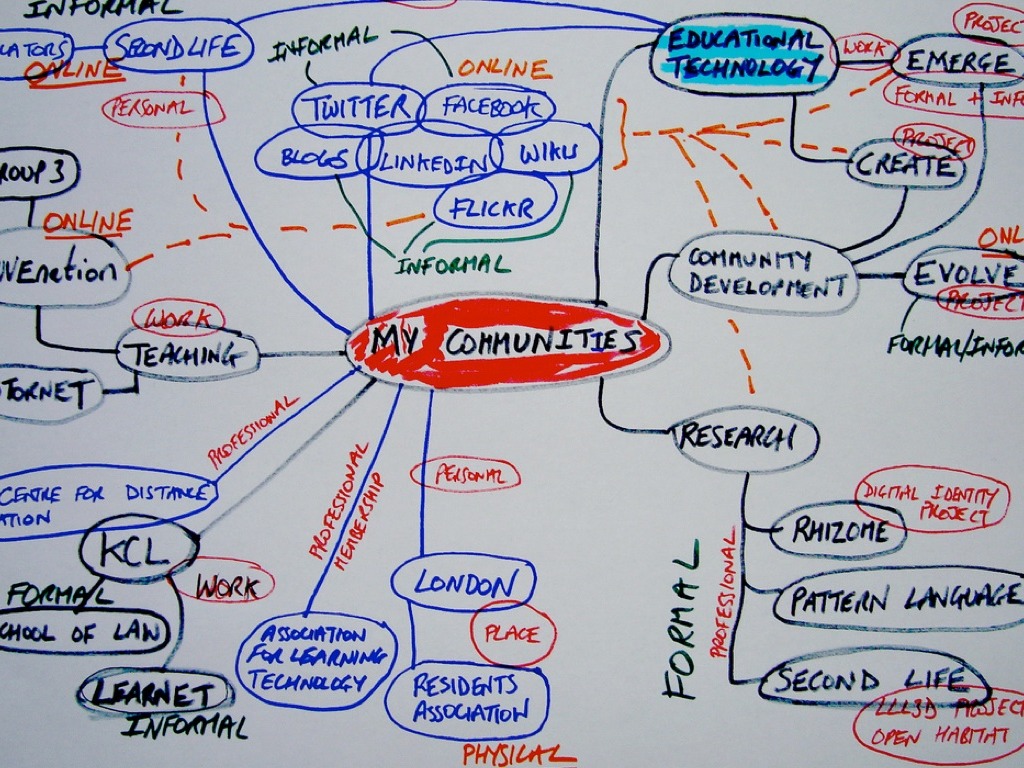 INFORMAL
SECOND LIFE
ONLINE
PERSONAL
INFORMAL
ONLINE
TWITTER
FACEBOOK
BLOGS
LINKEDIN
WIKIS
FLICKR
INFORMAL
EDUCATIONAL
TECHNOLOGY
WORK
PROJECT
EMERGE
FORMAL + INFO
PROJECT
CREATE
COMMUNITY
DEVELOPMENT
ONL
EVOLVE
PROJECT
FORMAL/INFOR
ROUP 3
ONLINE
WORK
TEACHING
MY COMMUNITIES
PROFESSIONAL
CENTRE FOR DISTANCE
ATION
KCL
WORK
FORMAL
CHOOL OF LAW
LEARNET
INFORMAL
PROFESSIONAL
MEMBERSHIP
ASSOCIATION
FOR LEARNING
TECHNOLOGY
PERSONAL
LONDON
PLACE
RESIDENTS
ASSOCIATION
PHYSICAL
RESEARCH
FORMAL
PROFESSIONAL
DIGITAL IDENTITY
PROJECT
RHIZOME
PATTERN LANGUAGE
SECOND LIFE
LLL3D PROJECT
OPEN HABITAT